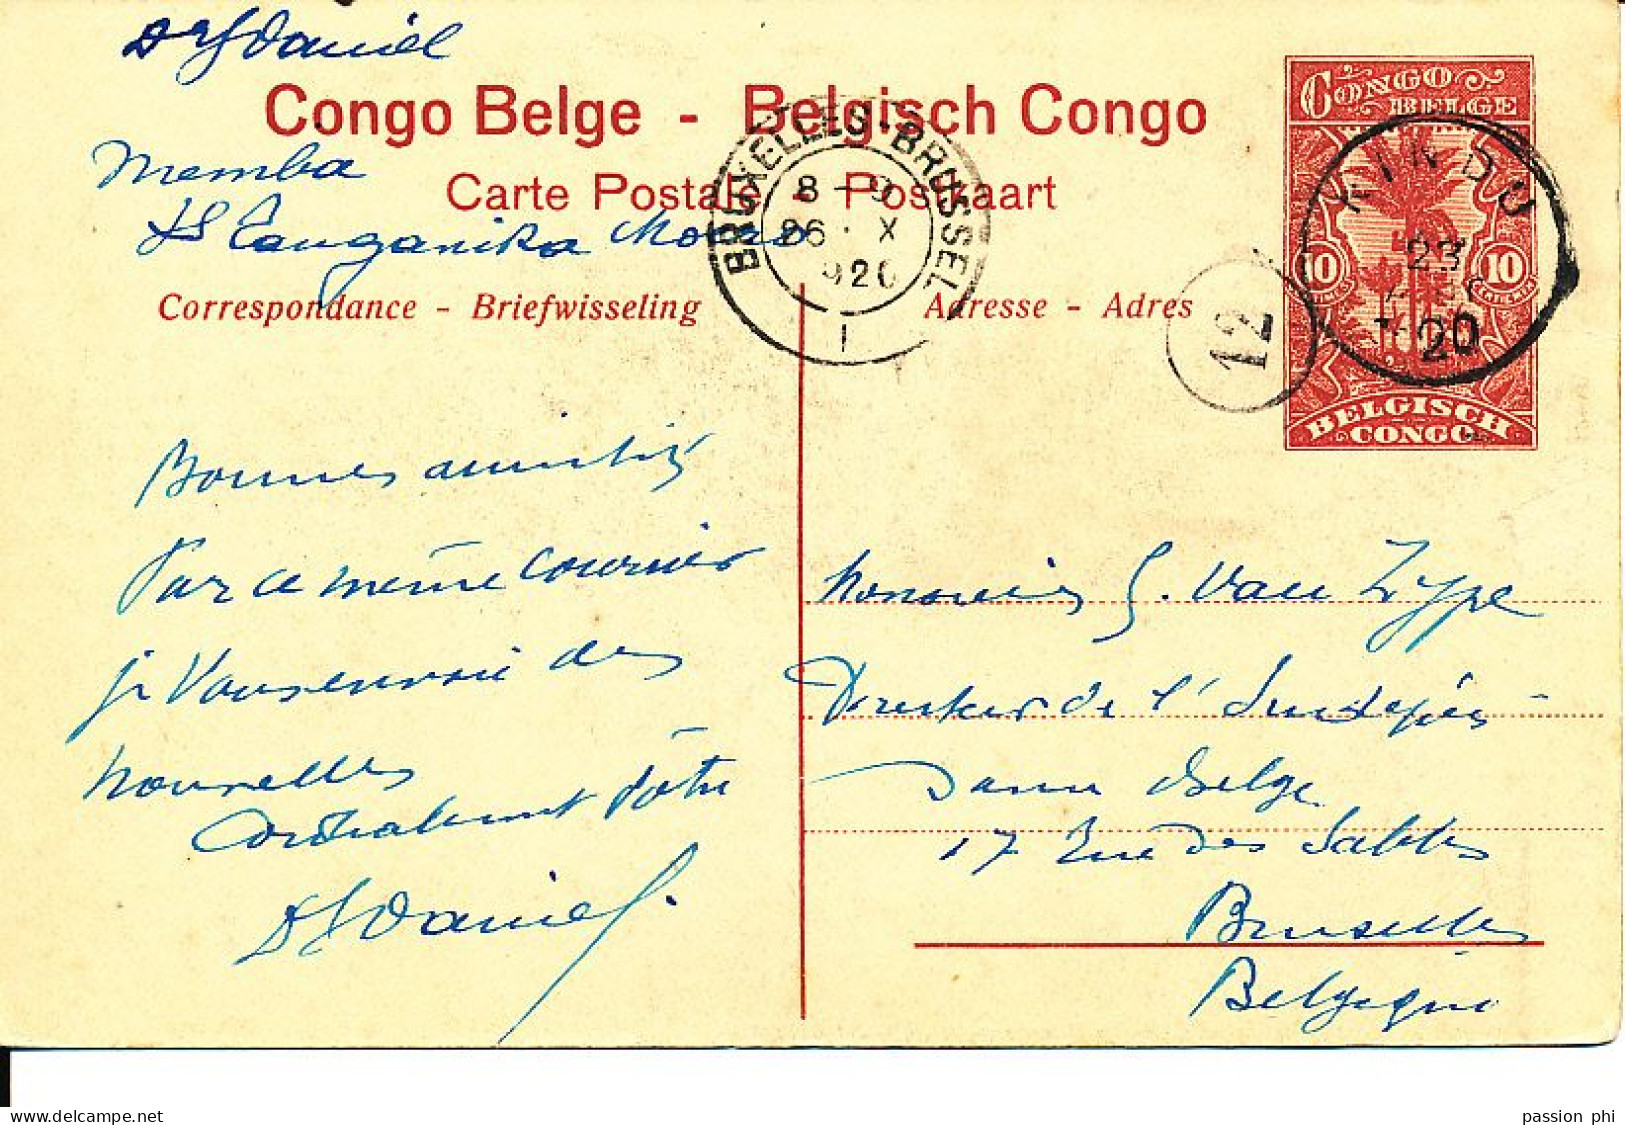 Dr J Daniel
Congo Belge - Belgisch Congo
Carte Postale - Postkaart
Memba
Tanganika Moero
Correspondance - Briefwisseling
Adresse - Adres
BRUXELLES-BRUSSEL
8 - 9
26 · X
1920
1
12
CONGO
BELGE
KINDU
23
20
10
10
BELGISCH
CONGO
Bonnes amitiés
Par ce même courrier
je vous envoie des
nouvelles
Cordialement vôtre
Dr J Daniel.
Monsieur G. Van Zype
Directeur de l'Indépen-
dance Belge
17 Rue des Sables
Bruxelles
Belgique
www.delcampe.net
passion phi